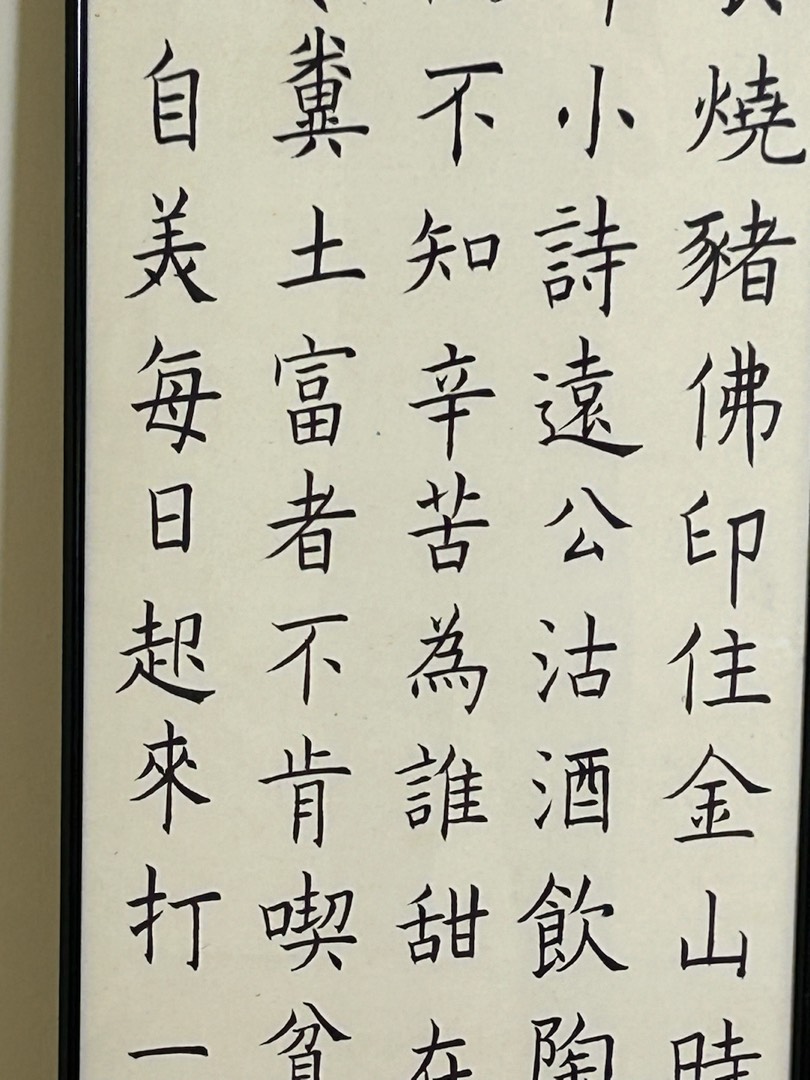 燒豬佛印住金山時
小詩遠公沽酒飲陶
不知辛苦為誰甜在
糞土富者不肯喫貧
自美每日起來打一